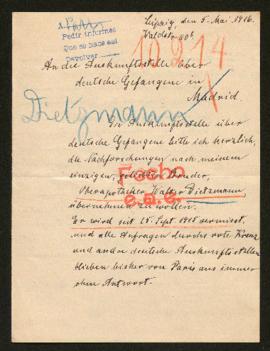 Leipzig, den 5. Mai 1916.
Waldstr.
Pedir informes
Que se hace así
Devolver
10.914
An die Auskunftsstelle über
deutsche Gefangene in
Madrid
Dietzmann
Die Auskunftsstelle über
deutsche Gefangene bitte ich herzlich,
die Nachforschungen nach meinem
einzigen, Bruder,
Fecho
Oberapotheker Walter Dietzmann
übernehmen zu wollen.
Er wird seit 25. Sept 1915 vermisst,
und alle Anfragen durchs rote Kreuz
und andre deutsche Auskunftsstellen
blieben bisher von Paris aus immer
ohne Antwort.